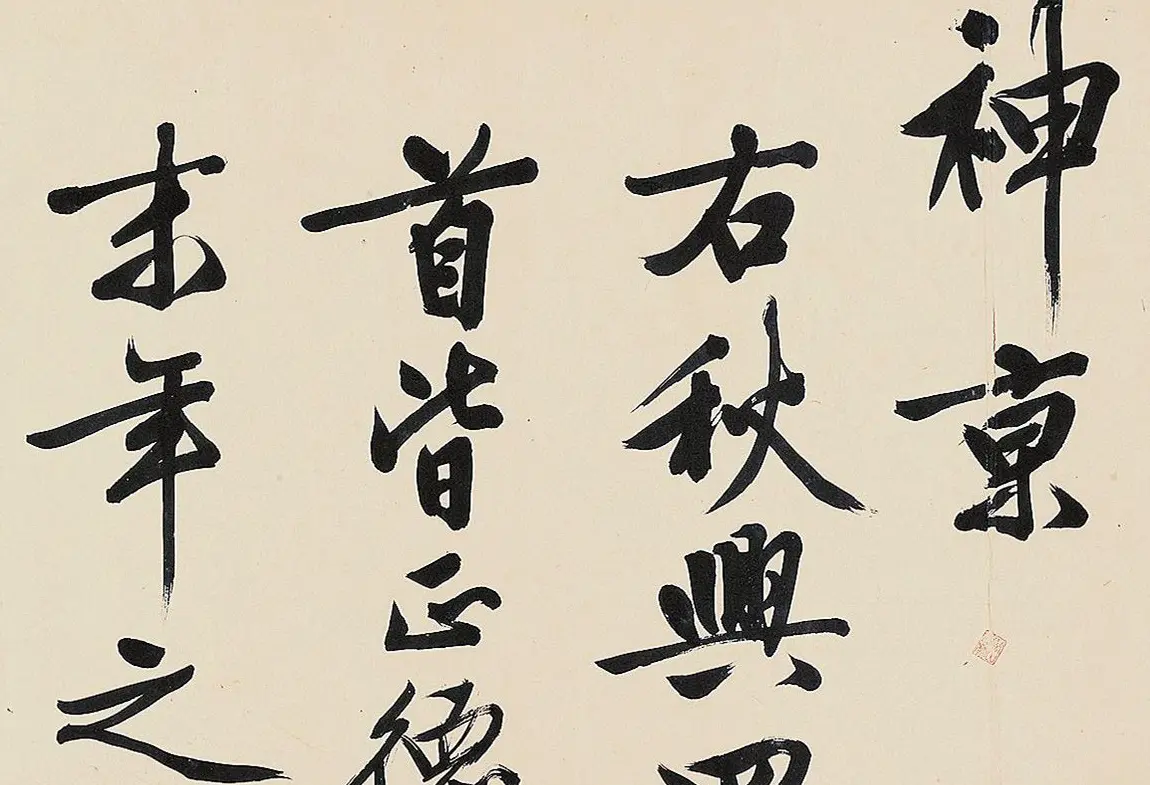 神京
右秋興四
首皆正德
末年之